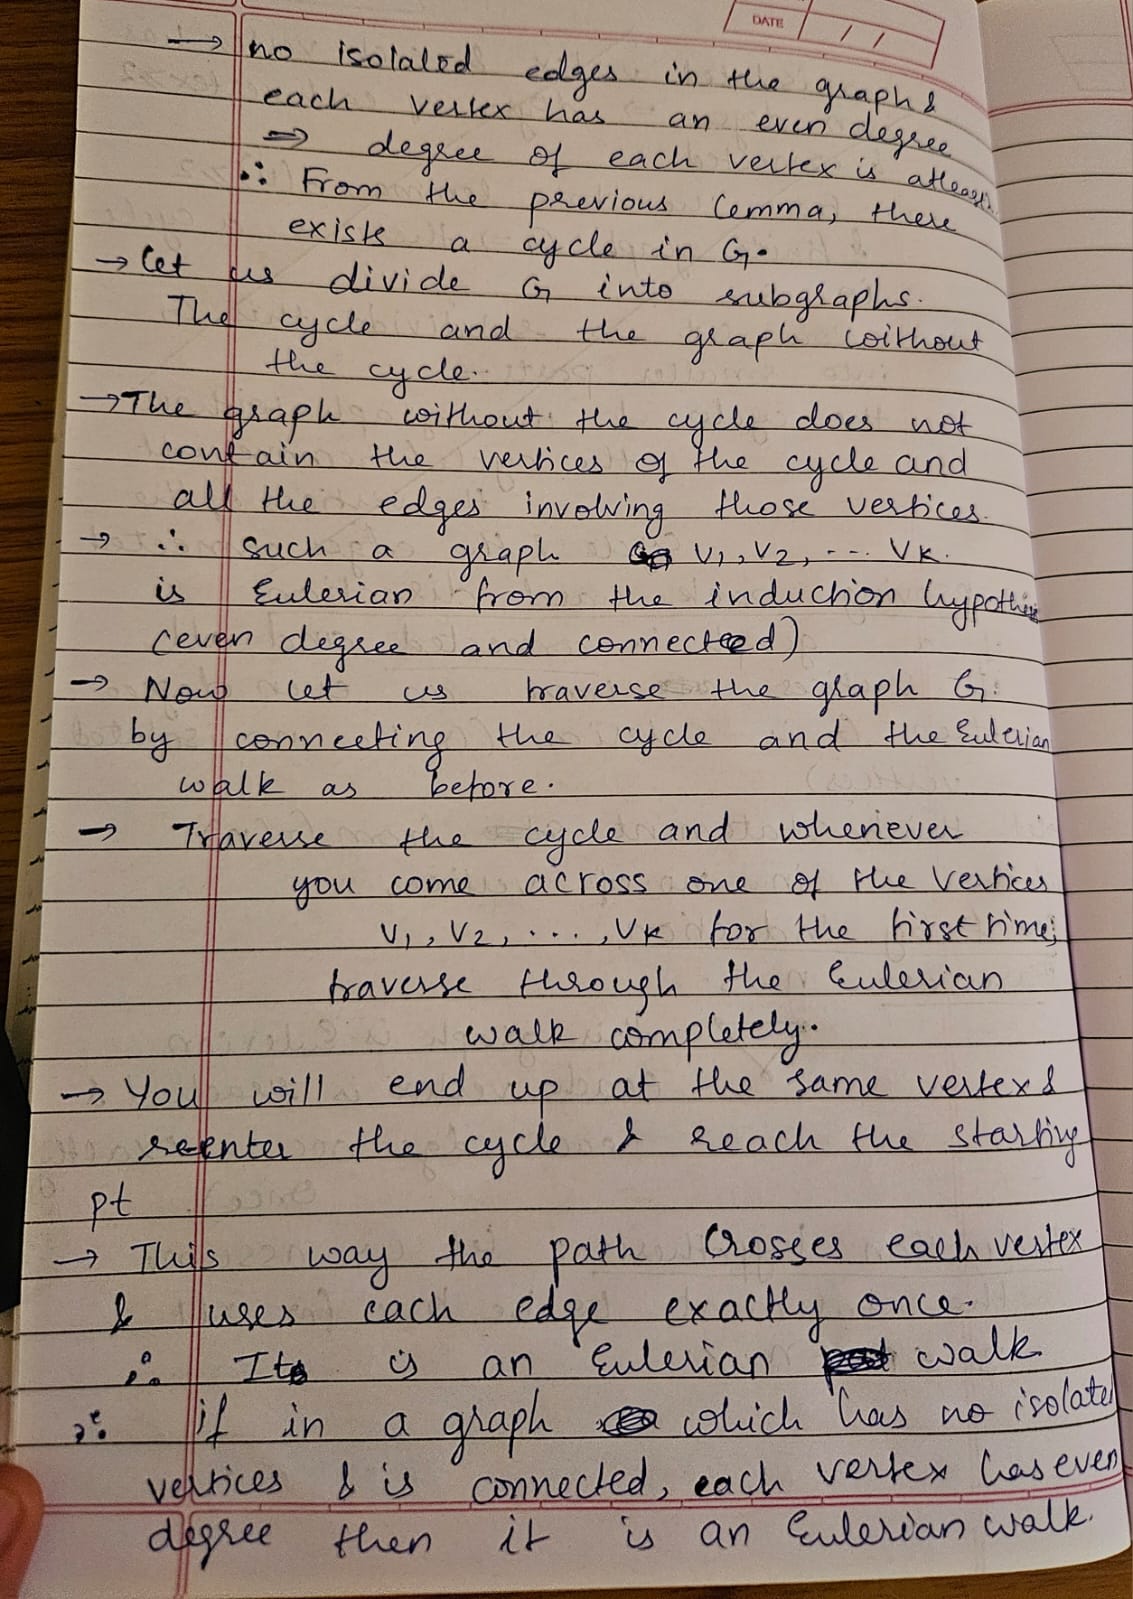 DATE / /
→ no isolated edges in the graph &
each vertex has an even degree
⇒ degree of each vertex is atleast
∴ From the previous lemma, there
exists a cycle in G.
→ let us divide G into subgraphs.
The cycle and the graph without
the cycle.
→ The graph without the cycle does not
contain the vertices of the cycle and
all the edges involving those vertices.
→ ∴ such a graph V1, V2, --- VK.
is Eulerian from the induction hypothesis
(even degree and connected)
→ Now let us traverse the graph G.
by connecting the cycle and the Eulerian
walk as before.
→ Traverse the cycle and whenever
you come across one of the vertices
V1, V2, ..., VK for the first time;
traverse through the Eulerian
walk completely.
→ You will end up at the same vertex &
reenter the cycle & reach the starting
pt
→ This way the path crosses each vertex
& uses each edge exactly once.
∴ It is an Eulerian walk
∴ if in a graph which has no isolated
vertices & is connected, each vertex has even
degree then it is an Eulerian walk.